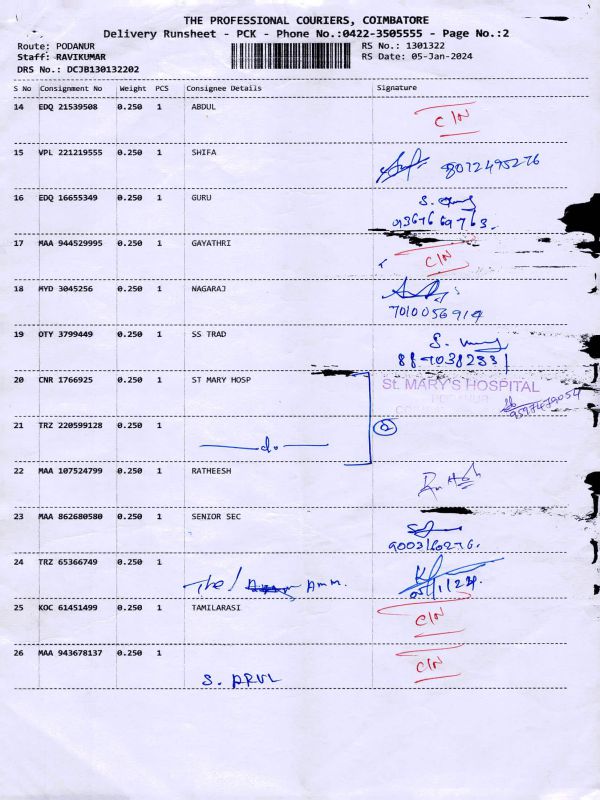 THE PROFESSIONAL COURIERS, COIMBATORE
Delivery Runsheet - PCK - Phone No.:0422-3505555 - Page No.:2
Route: PODANUR RS No.: 1301322
Staff: RAVIKUMAR RS Date: 05-Jan-2024
DRS No.: DCJB130132202
S No Consignment No Weight PCS Consignee Details Signature
14 EDQ 21539508 0.250 1 ABDUL C/N
15 VPL 221219555 0.250 1 SHIFA 8072495276
16 EDQ 16655349 0.250 1 GURU
9367669763.
17 MAA 944529995 0.250 1 GAYATHRI C/N
18 MYD 3045256 0.250 1 NAGARAJ
7010056914
19 OTY 3799449 0.250 1 SS TRAD
20 CNR 1766925 0.250 1 ST MARY HOSP St. MARY'S HOSPITAL
PODANUR
21 TRZ 220599128 0.250 1
do. 2
22 MAA 107524799 0.250 1 RATHEESH
23 MAA 862680580 0.250 1 SENIOR SEC
9003160276.
24 TRZ 65366749 0.250 1
05/1/24.
25 KOC 61451499 0.250 1 TAMILARASI C/N
26 MAA 943678137 0.250 1 C/N
S. ARUL